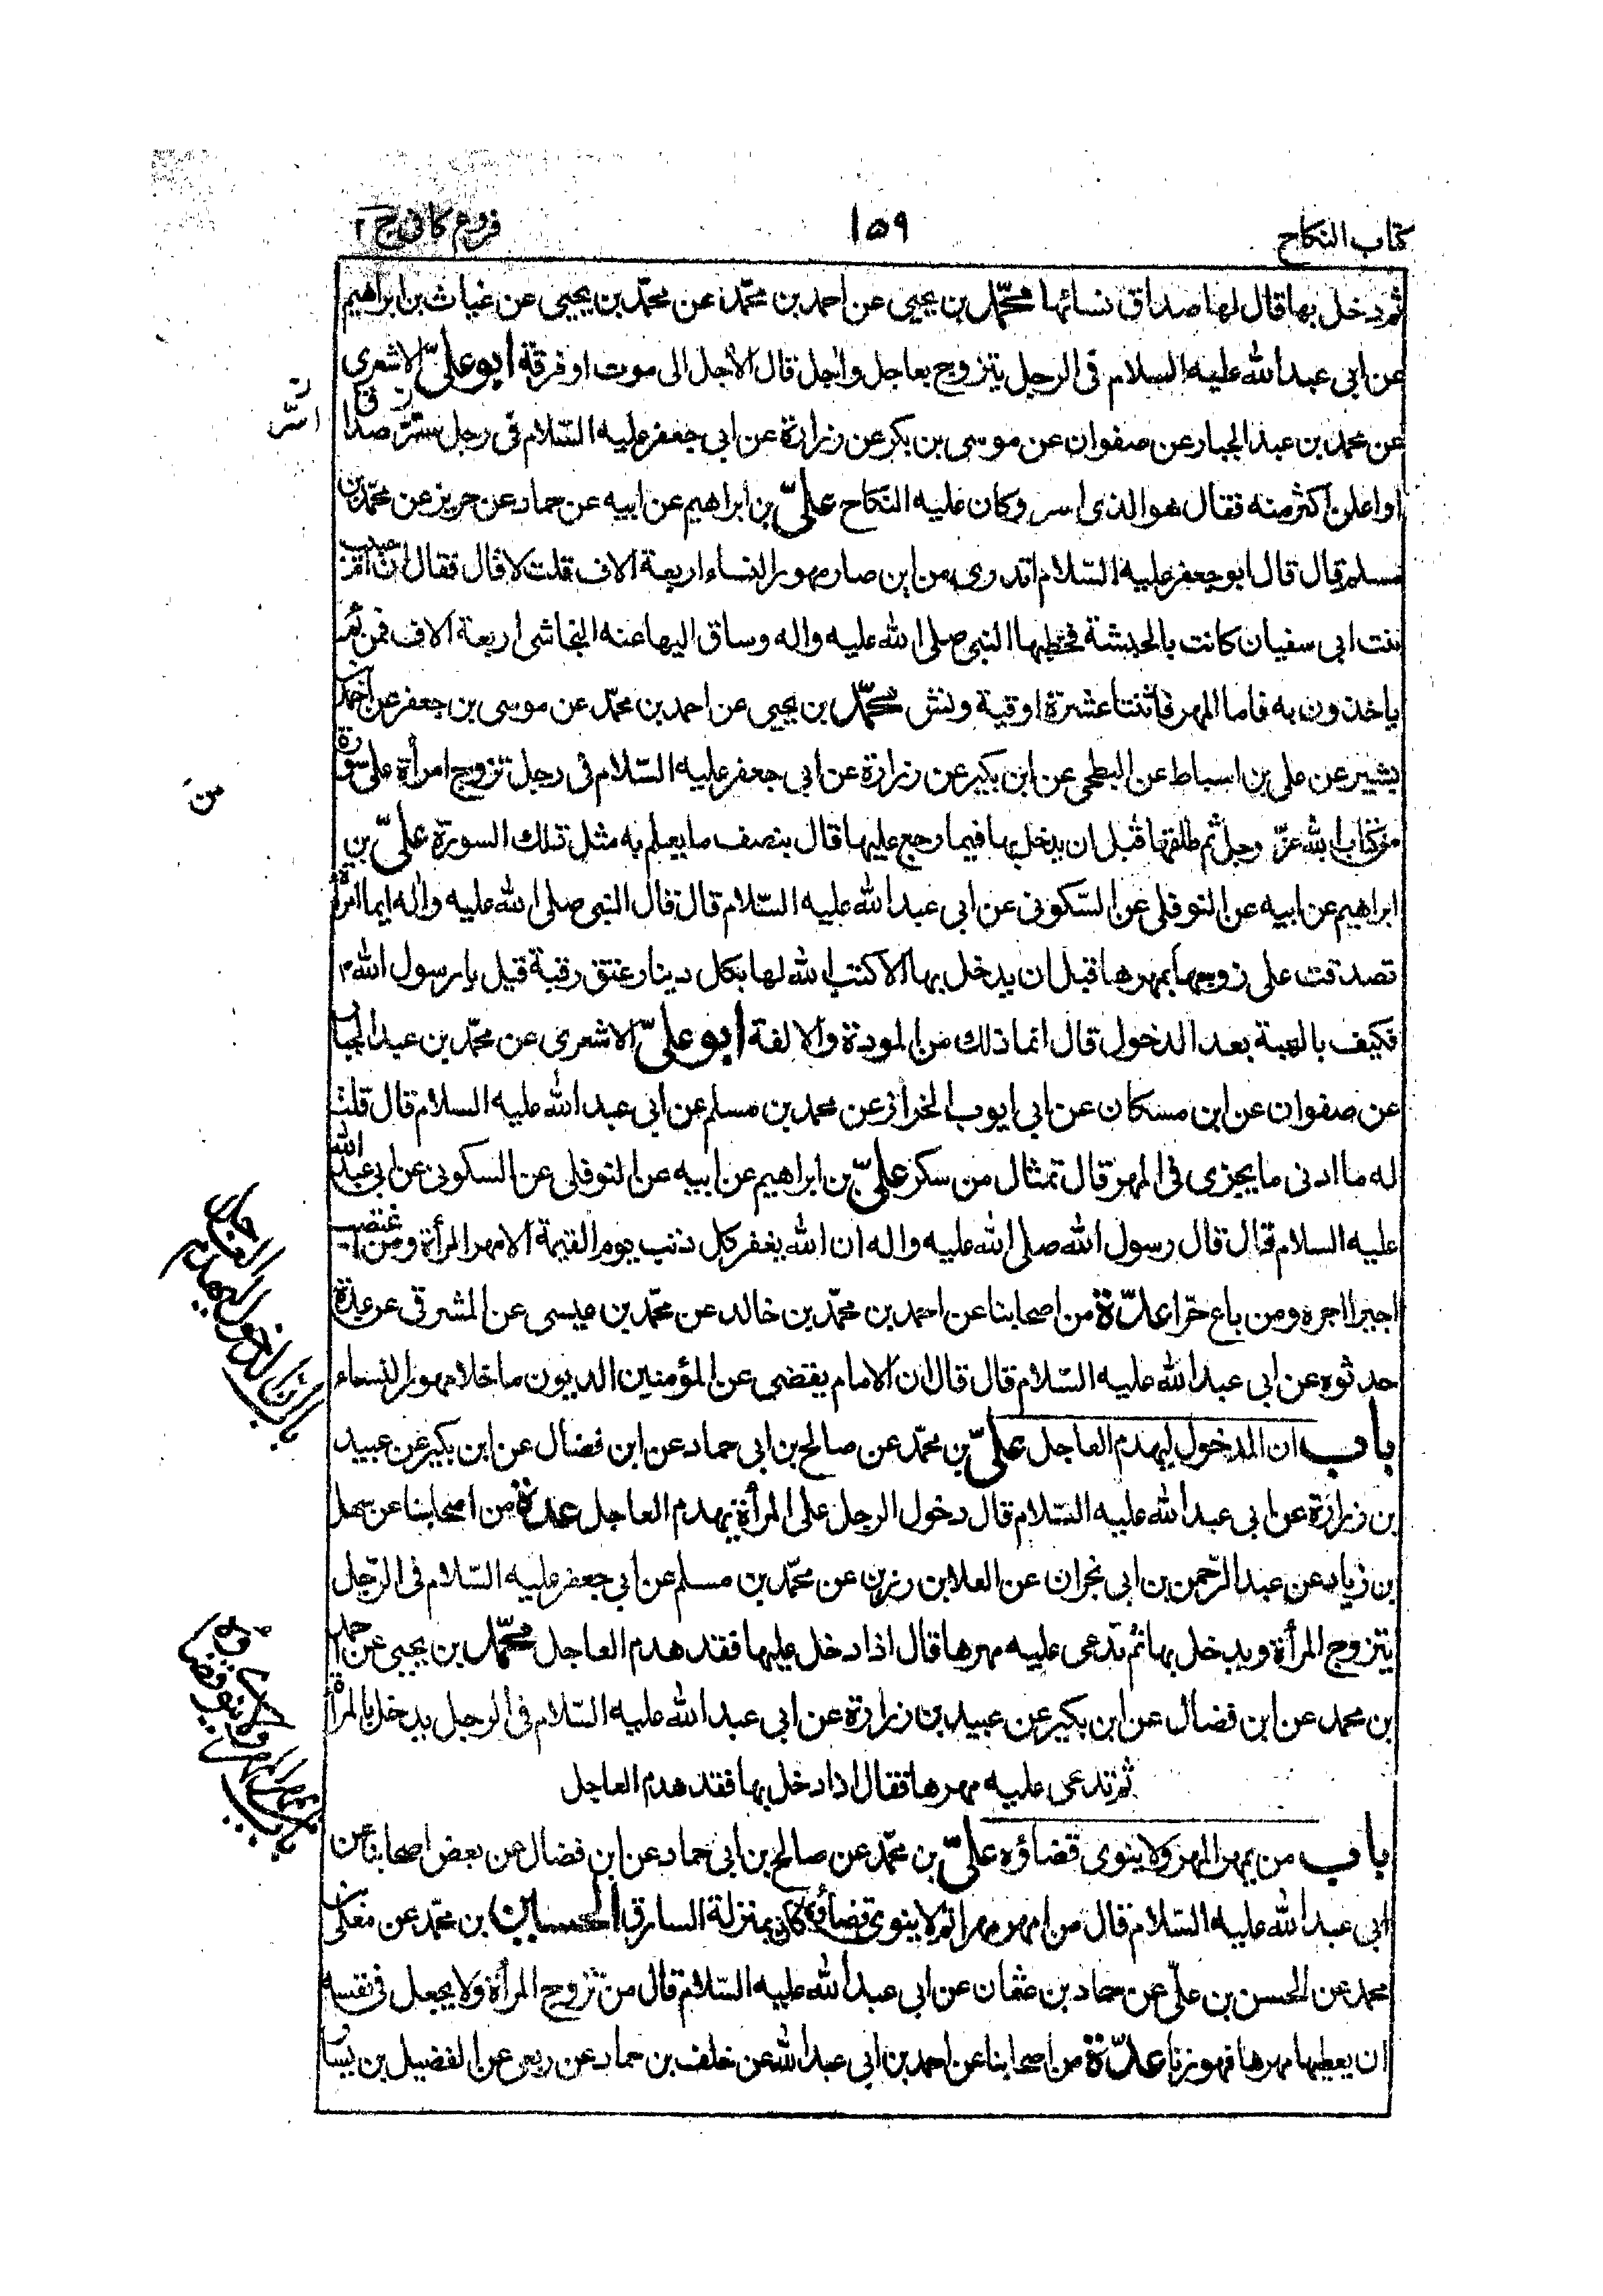 كتاب النكاح
١٥٩
فروع كافى ج ٢
ثم دخل بها قال لها صداق نسائها محمّد بن يحيى عن احمد بن محمّد عن محمّد بن يحيى عن غياث بن ابراهيم
عن ابى عبد الله عليه السلام فى الرجل يتزوج بعاجل واجل قال الأجل الى موت او فرقة أبو علىّ الاشعرى
عن محمد بن عبد الجبار عن صفوان عن موسى بن بكر عن زرارة عن ابى جعفر عليه السّلام فى رجل ستر صداقا
او اعلن اكثر منه فقال هو الذى اسر وكان عليه النكاح علىّ بن ابراهيم عن ابيه عن حماد عن حريز عن محمّد بن
مسلم قال قال ابو جعفر عليه السّلام اتدرى من اين صار مهور النساء اربعة الاف قلت لا قال فقال ان ام حبيب
بنت ابى سفيان كانت بالحبشة فخطبها النبى صلى الله عليه واله وساق اليها عنه النجاشى اربعة الاف فمن ثم
ياخذون به فاما المهر فاثنتا عشرة اوقية ونش محمّد بن يحيى عن احمد بن محمّد عن موسى بن جعفر عن احمد بن
بشير عن على بن اسباط عن البطحى عن ابن بكير عن زرارة عن ابى جعفر عليه السّلام فى رجل تزوج امرأة على سورة
من كتاب الله عزّ وجل ثم طلقها قبل ان يدخل بها فيما رجع عليها قال بنصف ما يعلم به مثل تلك السورة علىّ بن
ابراهيم عن ابيه عن النوفلى عن السّكونى عن ابى عبد الله عليه السّلام قال قال النبى صلى الله عليه واله ايما امرأة
تصدقت على زوجها بمهرها قبل ان يدخل بها الا كتب الله لها بكل دينار عتق رقبة قيل يا رسول الله م
فكيف بالهبة بعد الدخول قال انما ذلك من المودة والالفة أبو علىّ الاشعرى عن محمّد بن عبد الجبار
عن صفوان عن ابن مسكان عن ابى ايوب الخزاز عن محمد بن مسلم عن ابى عبد الله عليه السلام قال قلت
له ما ادنى ما يجزى فى المهر قال تمثال من سكر علىّ بن ابراهيم عن ابيه عن النوفلى عن السكونى عن ابى عبد الله
عليه السلام قال قال رسول الله صلى الله عليه واله ان الله يغفر كل ذنب يوم القيمة الا مهر المرأة ومن اغتصب
اجيرا اجره ومن باع حرّا عدّة من اصحابنا عن احمد بن محمّد بن خالد عن محمّد بن عيسى عن المشرقى عن عدة
حدثوه عن ابى عبد الله عليه السّلام قال قال ان الامام يقضى عن المؤمنين الديون ما خلا مهور النساء
باب ان المدخول ليهدم العاجل علىّ بن محمّد عن صالح بن ابى حماد عن ابن فضال عن ابن بكير عن عبيد
بن زرارة عن ابى عبد الله عليه السّلام قال دخول الرجل على المرأة يهدم العاجل عدة من اصحابنا عن سهل
بن زياد عن عبد الرّحمن بن ابى نجران عن العلا بن رزين عن محمّد بن مسلم عن ابى جعفر عليه السّلام فى الرّجل
يتزوج المرأة ويدخل بها ثم تدعى عليه مهرها قال اذا دخل عليها فقد هدم العاجل محمّد بن يحيى عن احمد
بن محمد عن ابن فضال عن ابن بكير عن عبيد بن زرارة عن ابى عبد الله عليه السّلام فى الرجل يدخل بالمرأة
ثم تدعى عليه مهرها فقال اذا دخل بها فقد هدم العاجل
باب من يمهر المهر ولا ينوى قضاؤه علىّ بن محمّد عن صالح بن ابى حماد عن ابن فضال عن بعض اصحابنا عن
ابى عبد الله عليه السّلام قال من امهر مهرا ثم لا ينوى قضاؤه كان بمنزلة السارق الحسين بن محمّد عن معلى بن
محمد عن الحسن بن علىّ عن حماد بن عثمان عن ابى عبد الله عليه السّلام قال من تزوج المرأة ولا يجعل فى نفسه
ان يعطيها مهرها فهو زنا عدّة من اصحابنا عن احمد بن ابى عبد الله عن خلف بن حماد عن ربعى عن الفضيل بن يسار
اسّر
من
باب ان الدخول يهدم العاجل